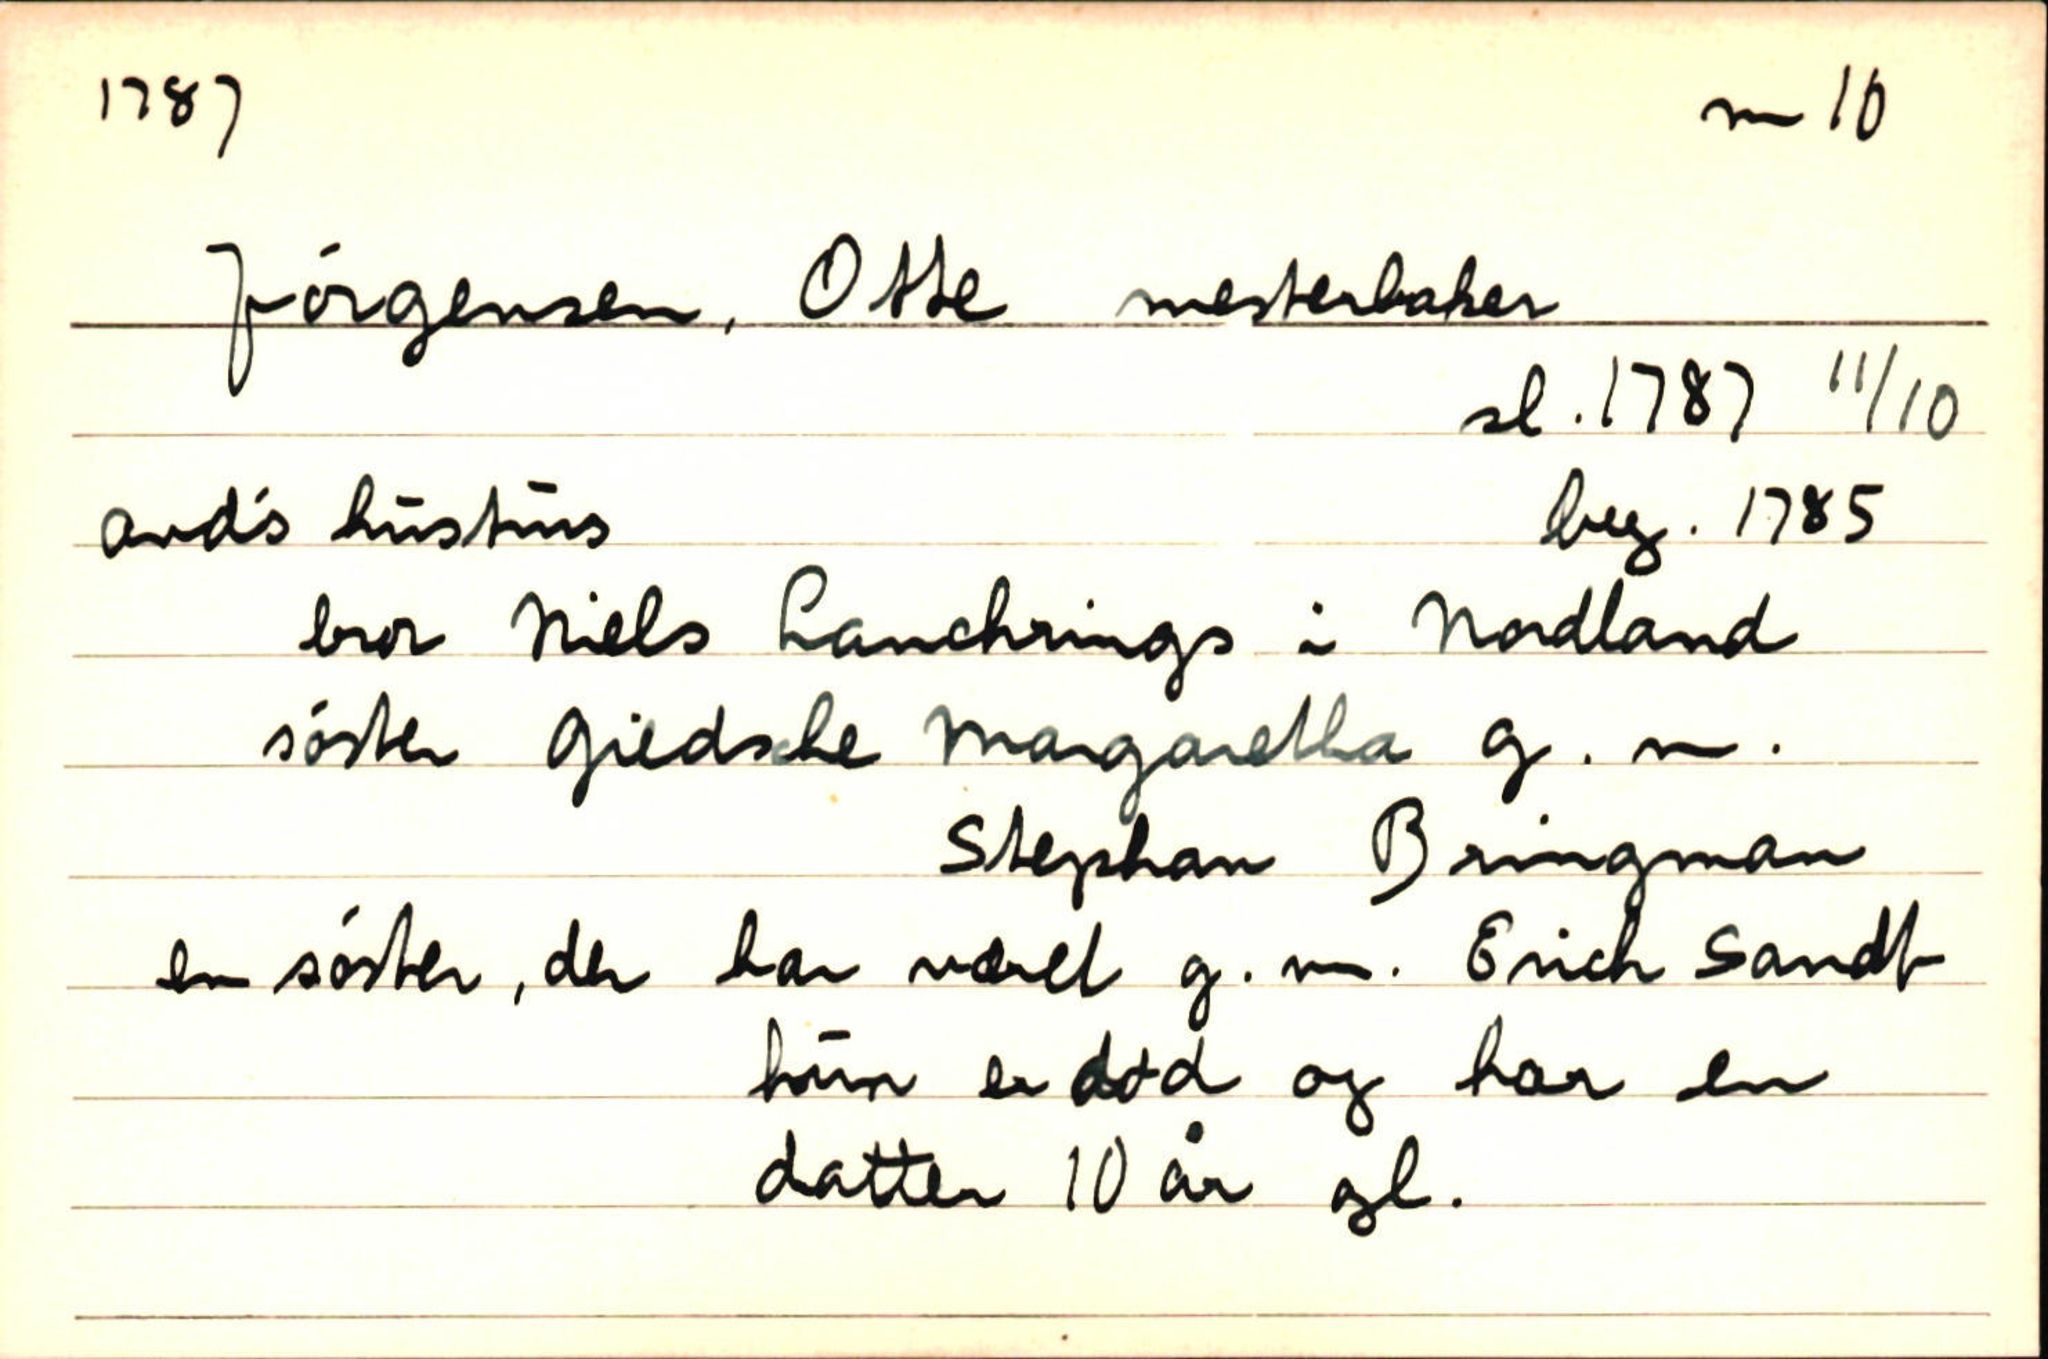 1787 m 10
Jörgensen, Otte mesterbaker
sl. 1787 11/10
avd's hustrus beg. 1785
bror Niels Lanchrings i Nordland
söster Giedsche Margaretha g. m.
Stephan Bringman
en söster, der har været g. m. Erich Sandt
hun er död og har en
datter 10 år gl.